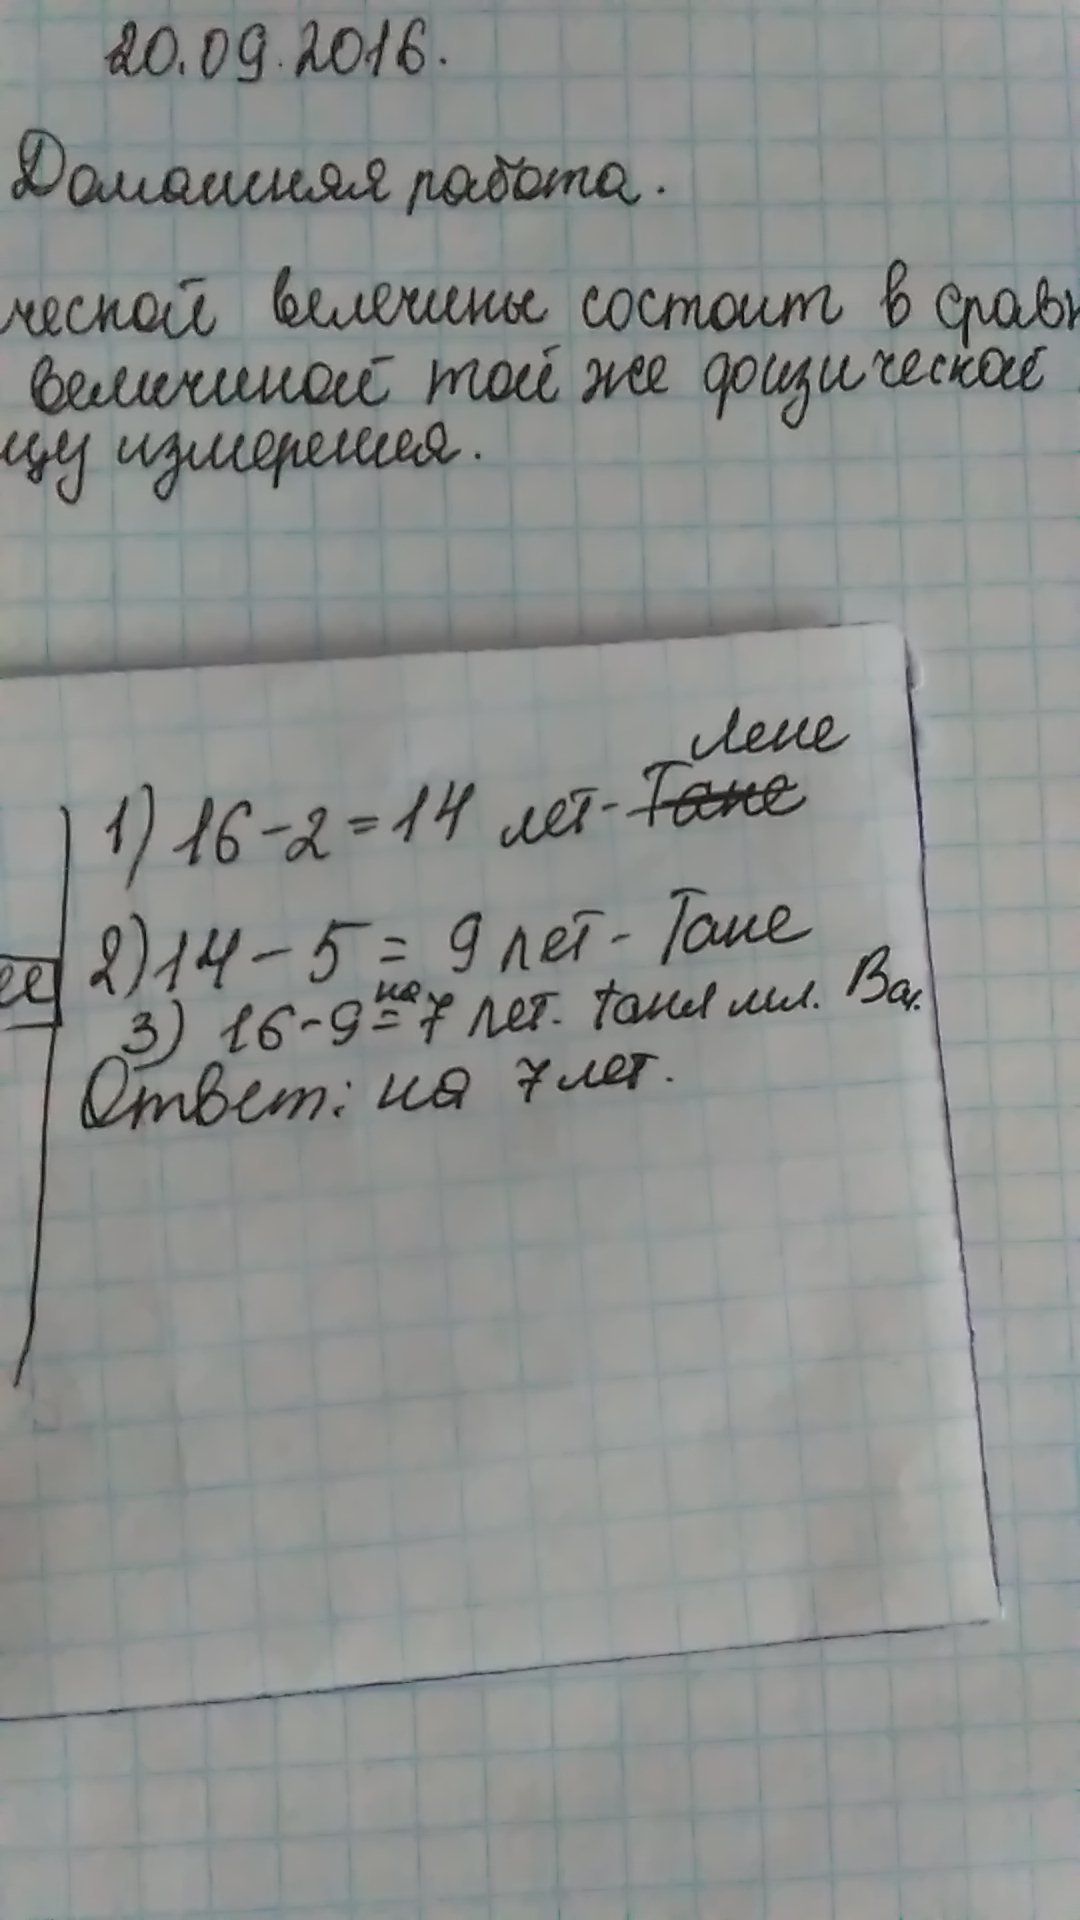 20.09.2016.
Домашняя работа.
ческой велечины состоит в срав
величиной той же физической
цу измерения.
Лене
1) 16-2=14 лет- Тане
2) 14-5= 9 лет- Тане
на
3) 16-9=7 лет. таня мл. Вал.
Ответ: на 7 лет.